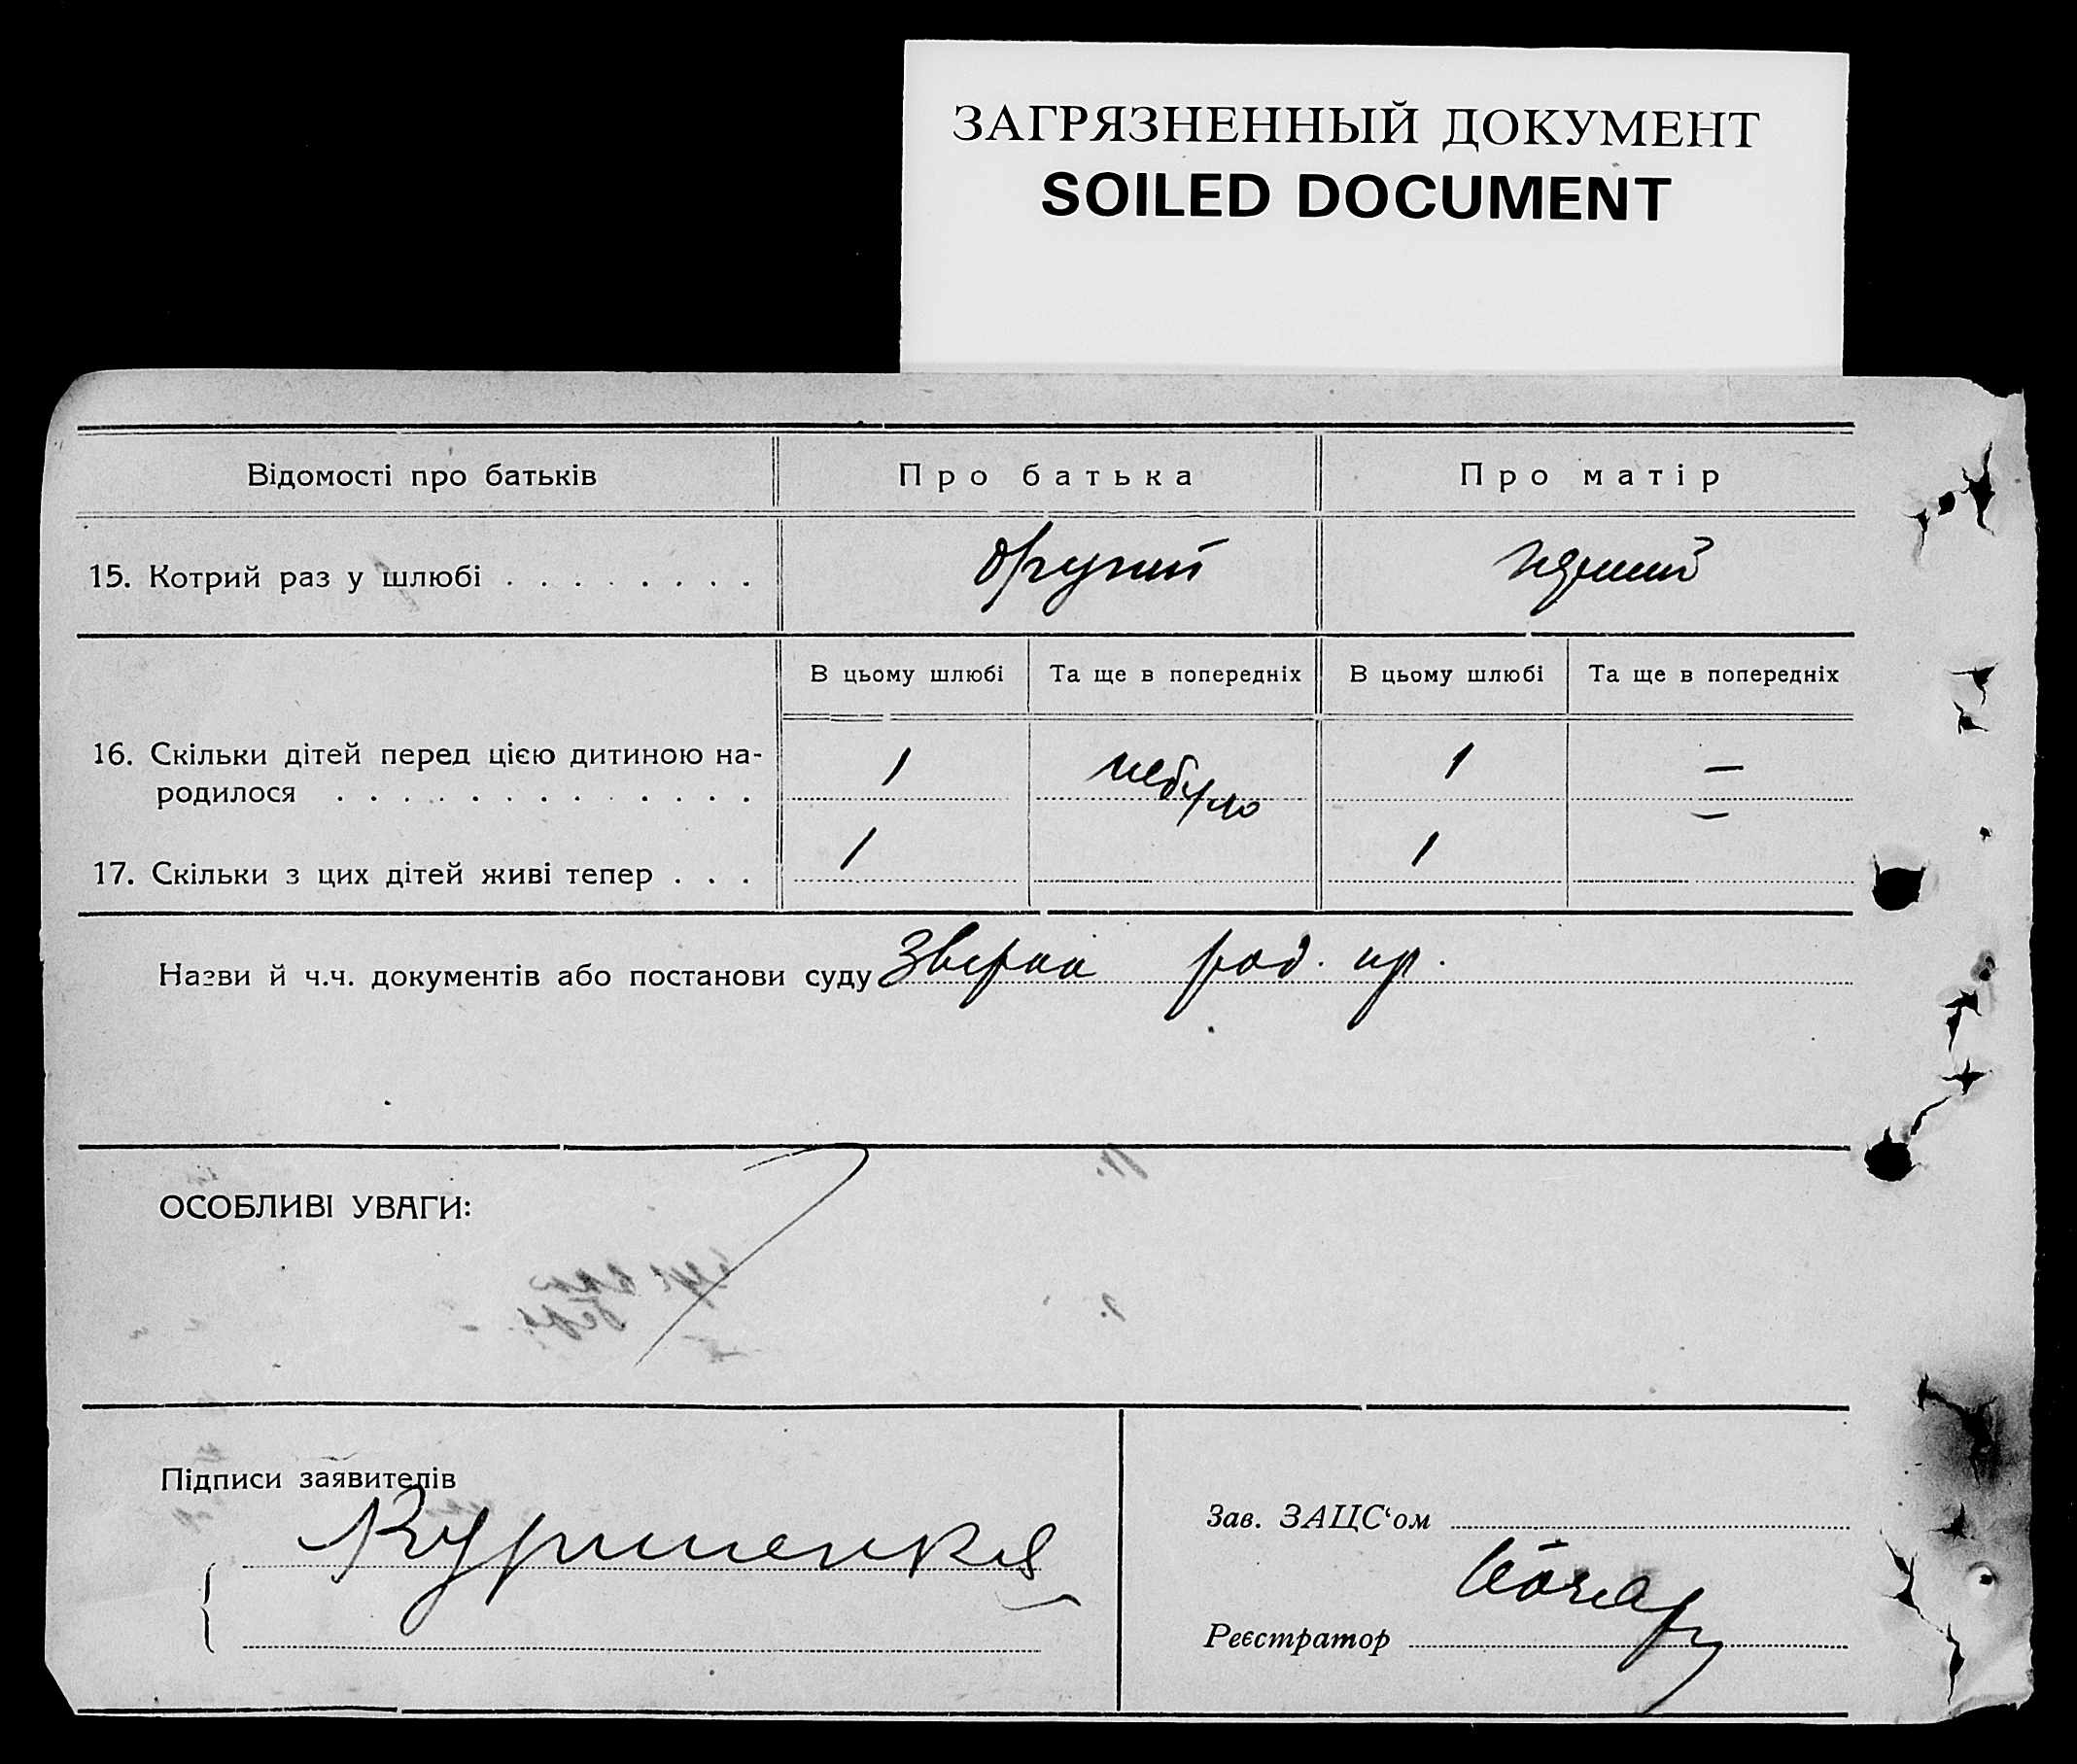 ЗАГРЯЗНЕННЫЙ ДОКУМЕНТ
SOILED DOCUMENT
Відомості про батьків Про батька Про матір
15. Котрий раз у шлюбі . . . . . . . . другий перший
В цьому шлюбі Та ще в попередніх В цьому шлюбі Та ще в попередніх
16. Скільки дітей перед цією дитиною на-
родилося . . . . . . . . . . . . . 1 небуло 1 —
17. Скільки з цих дітей живі тепер . . . 1 1 —
Назви й ч.ч. документів або постанови суду род. пр.
ОСОБЛИВІ УВАГИ:
Підписи заявителів
Зав. ЗАЦС‘ом
Реєстратор